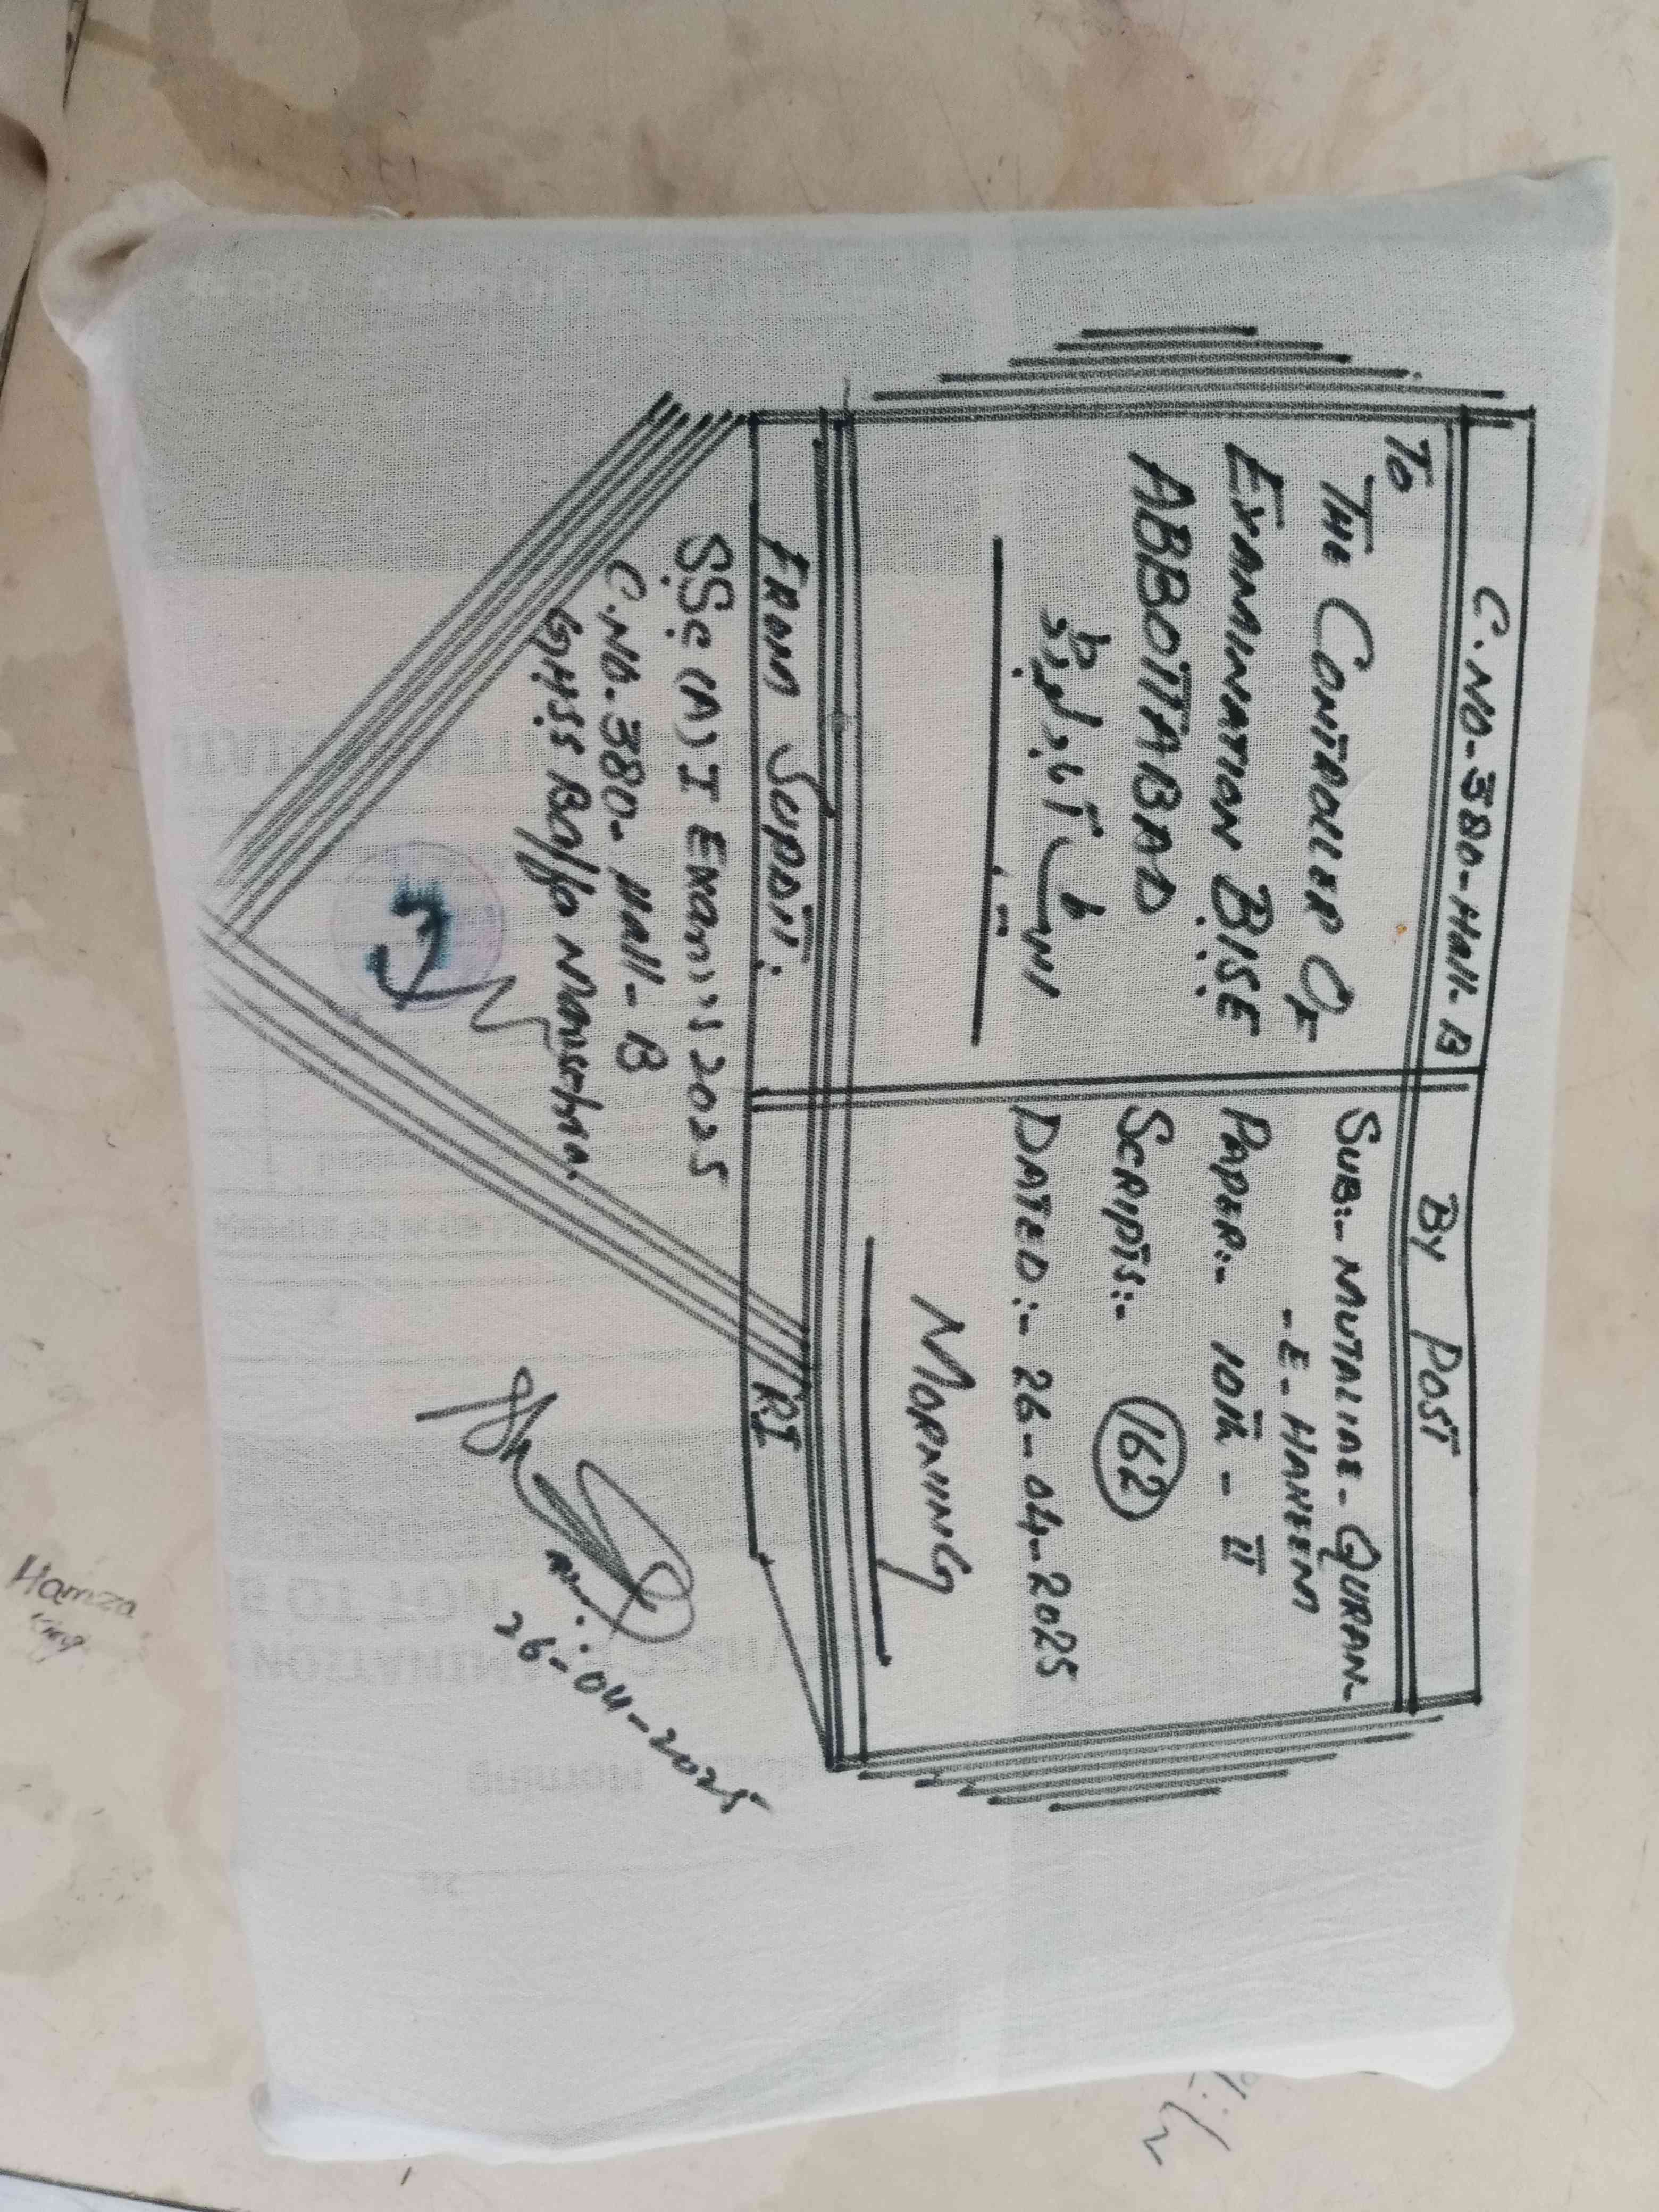 C.NO-380-Hall-B
By Post
To
THE CONTROLLER OF
EXAMINATION B.I.S.E
ABBOTTABAD
SUB:- MUTALIAE-QURAN-
-E-HAKEEM
PAPER:- 10th - II
SCRIPTS:- 162
DATED:- 26-04-2025
MORNING
FROM SUPDTT:
RI
SSC (A) I Exam: 2025
C.NO.380-Hall-B
GHSS Baffa Mansehra.
26-04-2025
Hamza